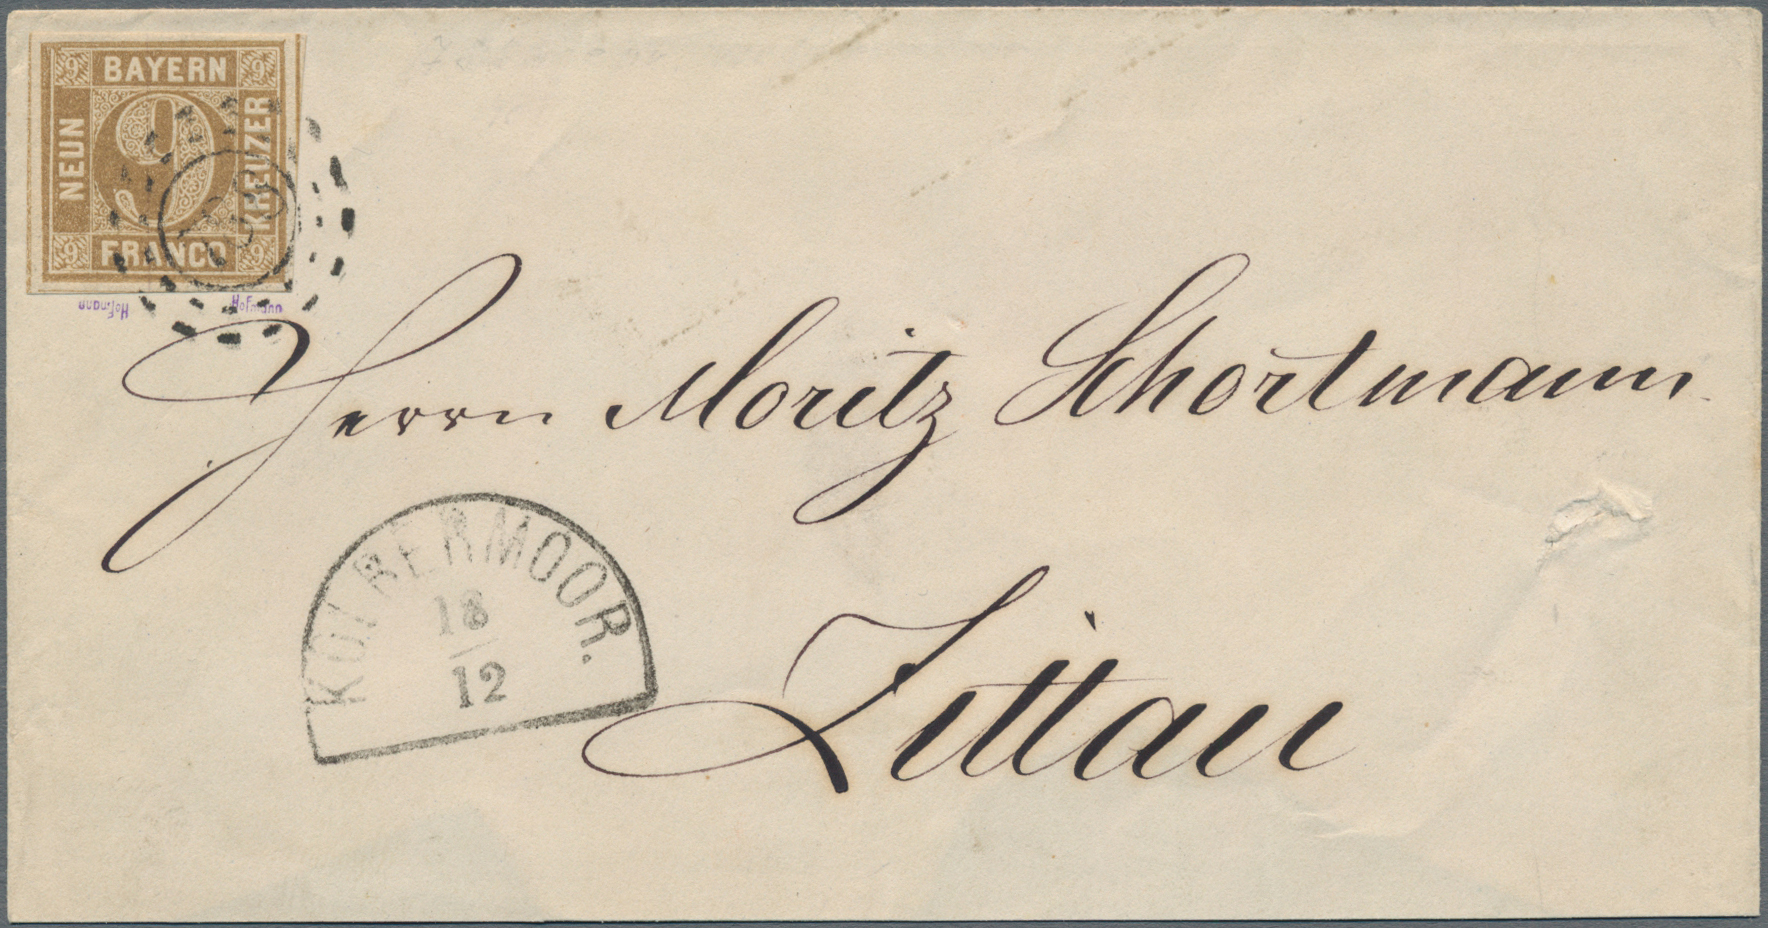 9 BAYERN 9
NEUN 9 KREUZER
9 FRANCO 9
Hofmann Hofmann
Herrn Moritz Schortmann
KOLBERMOOR.
18
12
Zittau